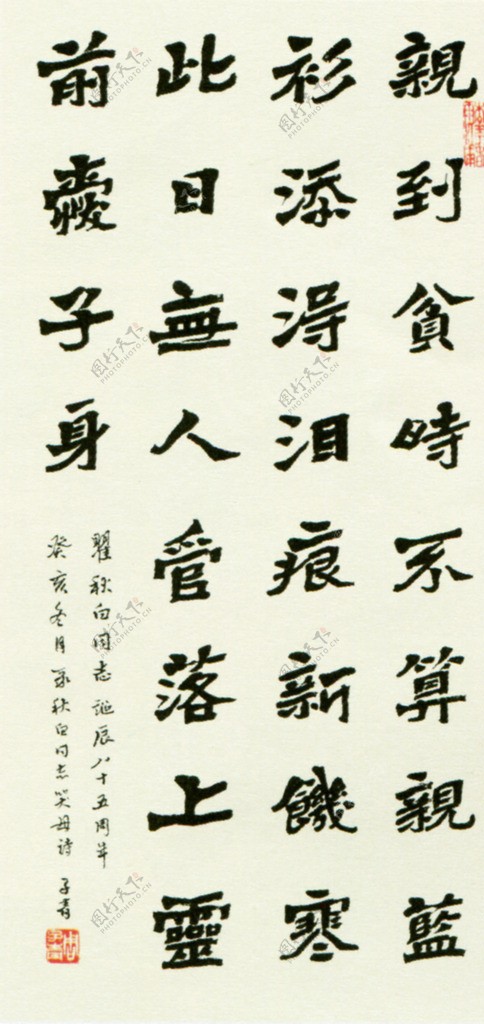 親到貧時不算親藍
衫添淂泪痕新饑寒
此日無人管落上靈
前愛子身
瞿秋白同志誕辰八十五周年
癸亥冬月录秋白同志哭母詩 子青
图行天下
PHOTOPHOTO.CN